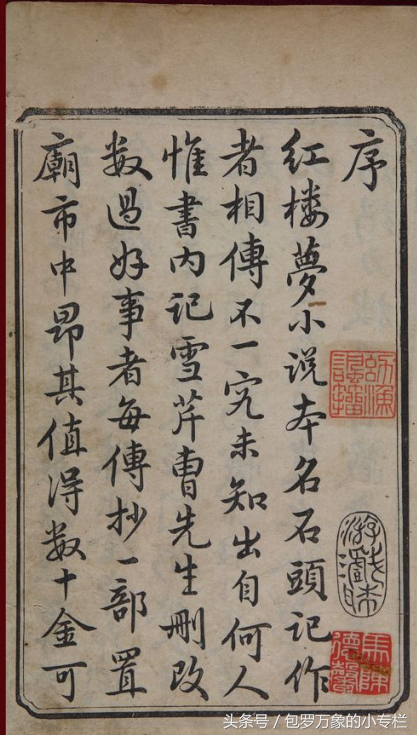 序
红楼夢小说本名石頭記作
者相傳不一究未知出自何人
惟書内記雪芹曹先生删改
数過好事者每傳抄一部置
廟市中昂其值得数十金可
头条号 / 包罗万象的小专栏